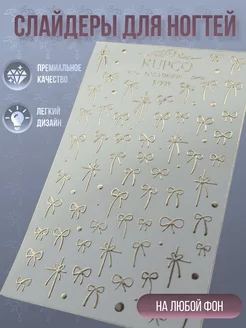 СЛАЙДЕРЫ ДЛЯ НОГТЕЙ
ПРЕМИАЛЬНОЕ
КАЧЕСТВО
ЛЕГКИЙ
ДИЗАЙН
НА ЛЮБОЙ ФОН